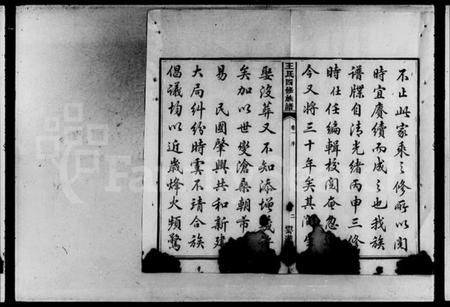 不止此家乘之修所以閱
時宜賡續而成之也我族
譜牒自清光緒丙申三修
時任任編輯校閱奄忽
今又將三十年矣其間生
王氏四修族譜
卷一 序
二
娶沒葬又不知添增幾
矣加以世變滄桑朝市
易 民國肇興共和新建
大局糾紛時雲不靖合族
倡議均以近歲烽火頻驚